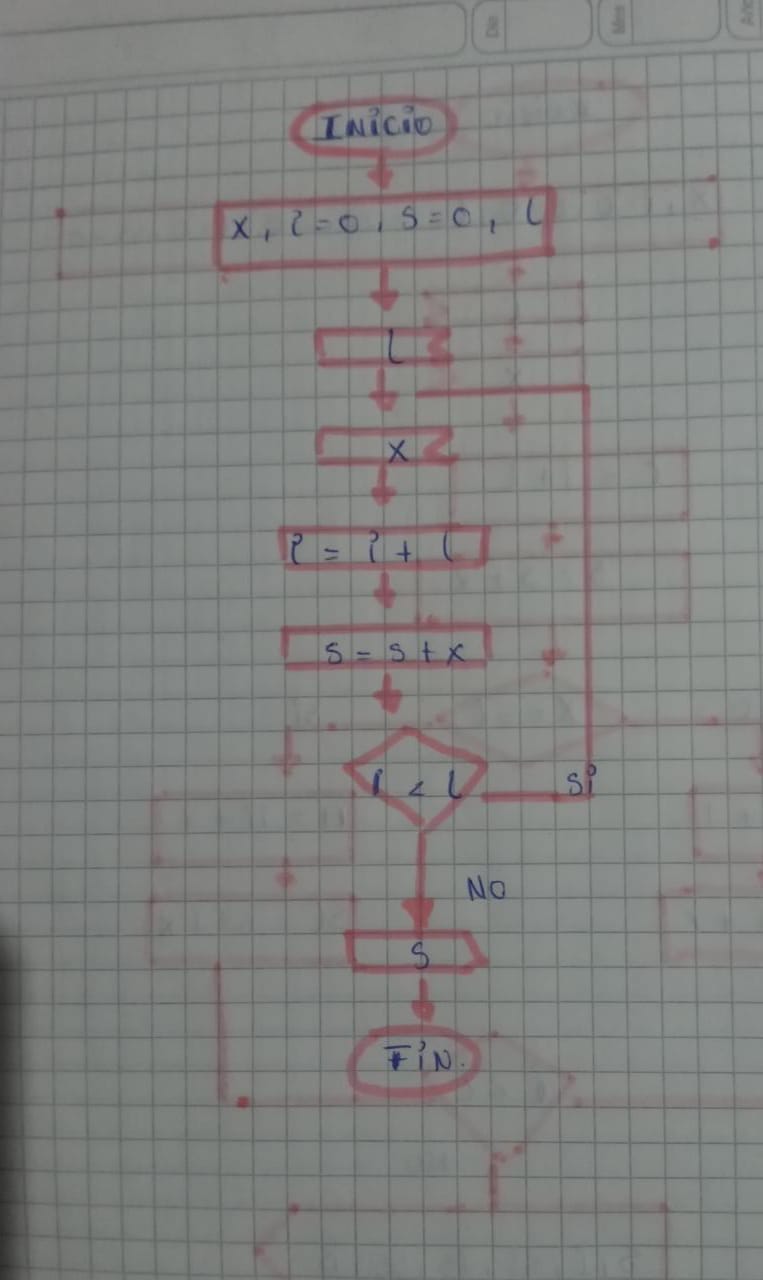 Dia
Mes
Año
INICIO
x, i=0, s=0, l
l
x
i = i + l
s = s + x
i < l
Si
NO
S
FIN.